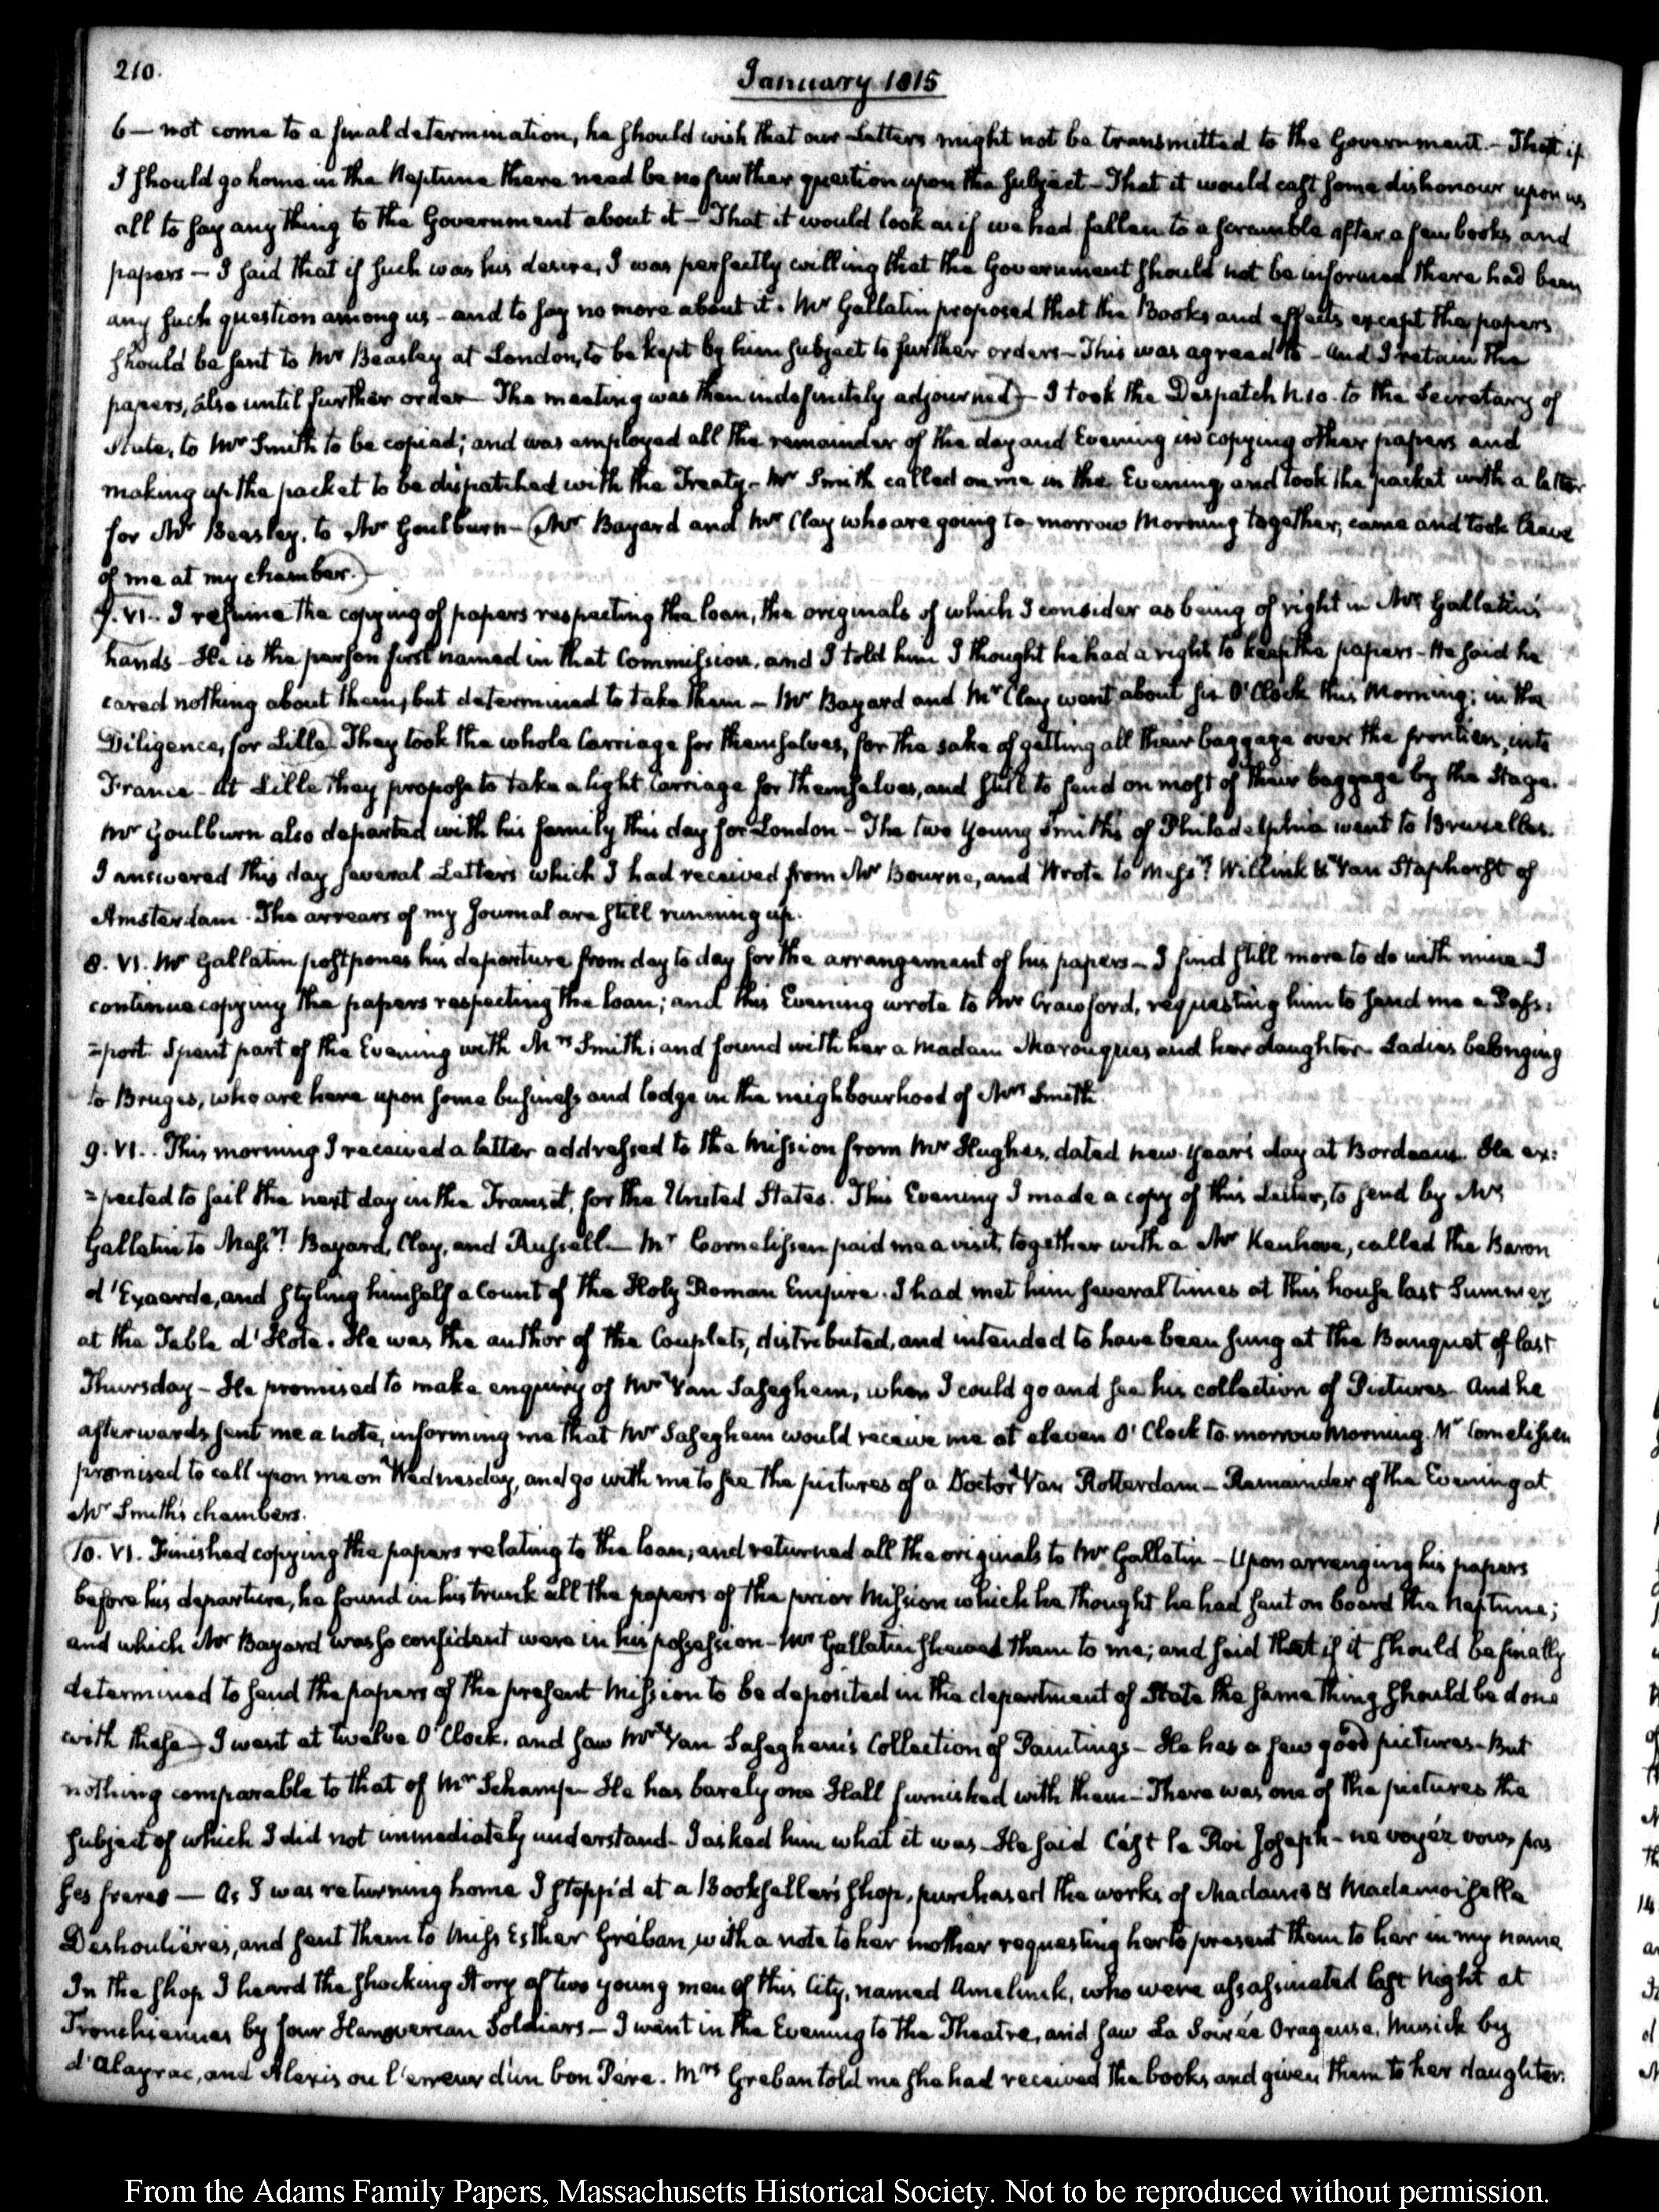 210.
January 1815
6 — not come to a final determination, he should wish that our Letters might not be transmitted to the Government. — That if
I should go home in the Neptune there need be no further question upon the subject — That it would cast some dishonour upon us
all to say any thing to the Government about it — That it would look as if we had fallen to a scramble after a few books and
papers — I said that if such was his desire, I was perfectly willing that the Government should not be informed there had been
any such question among us — and to say no more about it. Mr Gallatin proposed that the Books and effects except the papers
should be sent to Mr Beasley at London, to be kept by him subject to further orders — This was agreed to — And I retain the
papers, also until further order — The meeting was then indefinitely adjourned) — I took the Despatch N. 10. to the Secretary of
State, to Mr Smith to be copied; and was employed all the remainder of the day and Evening in copying other papers and
making up the packet to be dispatched with the Treaty — Mr Smith called on me in the Evening, and took the packet with a letter
for Mr Beasley, to Mr Goulburn — (Mr Bayard and Mr Clay who are going to-morrow Morning together, came and took leave
of me at my chamber.)
7. VI.. I resume the copying of papers respecting the loan, the originals of which I consider as being of right in Mr Gallatin's
hands — He is the person first named in that Commission, and I told him I thought he had a right to keep the papers — He said he
cared nothing about them, but determined to take them — Mr Bayard and Mr Clay went about six O'Clock this Morning; in the
Diligence, for Lille) They took the whole Carriage for themselves, for the sake of getting all their baggage over the frontier, into
France — At Lille they propose to take a light Carriage for themselves, and still to send on most of their baggage by the Stage.
Mr Goulburn also departed with his family this day for London — The two young Smiths of Philadelphia went to Bruxelles.
I answered this day several Letters which I had received from Mr Bourne, and wrote to Messrs Willink & Van Staphorst of
Amsterdam. The arrears of my Journal are still running up.
8. VI. Mr Gallatin postpones his departure from day to day for the arrangement of his papers — I find still more to do with mine — I
continue copying the papers respecting the loan; and this Evening wrote to Mr Crawford, requesting him to send me a Pass:
=port. Spent part of the Evening with Mrs Smith; and found with her a Madam Marouques and her daughter — Ladies belonging
to Bruges, who are here upon some business and lodge in the neighbourhood of Mrs Smith.
9. VI.. This morning I received a letter addressed to the Mission from Mr Hughes, dated new-years day at Bordeaux. He ex:
=pected to sail the next day in the Transit, for the United States. This Evening I made a copy of this Letter, to send by Mr
Gallatin to Messrs Bayard, Clay, and Russell — Mr Cornelissen paid me a visit, together with a Mr Kenhove, called the Baron
d'Exaerde, and styling himself a Count of the Holy Roman Empire. I had met him several times at this house last Summer
at the Table d'Hote. He was the author of the Couplets, distributed, and intended to have been sung at the Banquet of last
Thursday — He promised to make enquiry of Mr Van Saseghem, when I could go and see his collection of Pictures — And he
afterwards sent me a note, informing me that Mr Saseghem would receive me at eleven O'Clock to-morrow Morning. Mr Cornelissen
promised to call upon me on Wednesday, and go with me to see the pictures of a Doctor Van Rotterdam — Remainder of the Evening at
Mr Smith's chambers.
10. VI. Finished copying the papers relating to the loan; and returned all the originals to Mr Gallatin — Upon arranging his papers
before his departure, he found in his trunk all the papers of the prior Mission which he thought he had sent on board the Neptune;
and which Mr Bayard was so confident were in his possession — Mr Gallatin shewed them to me; and said that if it should be finally
determined to send the papers of the present Mission to be deposited in the department of State the same thing should be done
with these) — I went at twelve O'Clock, and saw Mr Van Saseghem's Collection of Paintings — He has a few good pictures — But
nothing comparable to that of Mr Schamp — He has barely one Hall furnished with them — There was one of the pictures the
subject of which I did not immediately understand — I asked him what it was — He said C'ést le Roi Joseph — ne voyéz vous pas
ses freres — As I was returning home I stopp'd at a Bookseller's shop, purchased the works of Madame & Mademoiselle
Deshoulières, and sent them to Miss Esther Gréban, with a note to her mother requesting her to present them to her in my name.
In the shop I heard the shocking Story of two young men of this City, named Amelinck, who were assassinated last Night at
Tronchiennes by four Hanoverian Soldiers — I went in the Evening to the Theatre, and saw La Soirée Orageuse, Musick by
d'Alayrac, and Alexis ou l'erreur d'un bon Pére. Mrs Greban told me she had received the books and given them to her daughter.
From the Adams Family Papers, Massachusetts Historical Society. Not to be reproduced without permission.